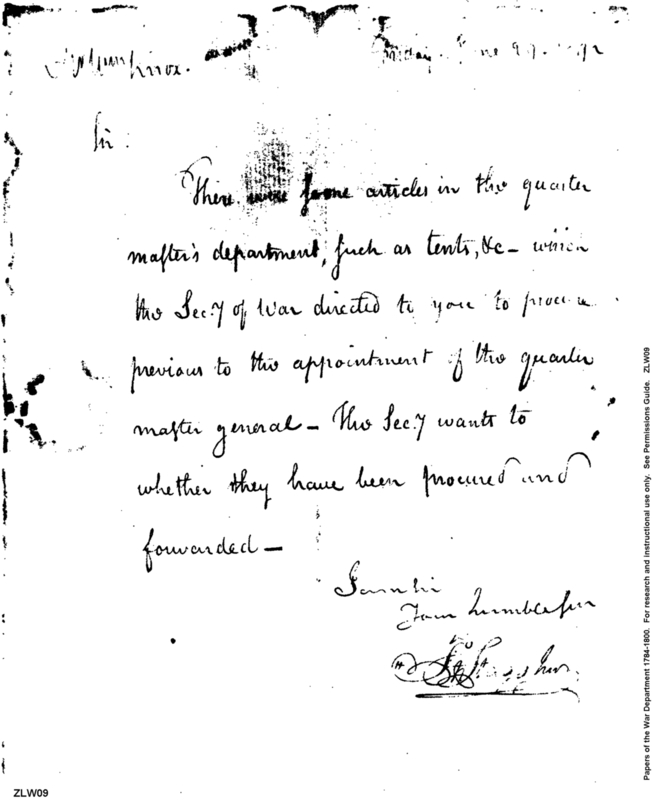 Knox.
Sir:
There were some articles in the quarter
master's department, such as tents, &c – which
the Sec.y of War directed to you to procure
previous to the appointment of the quarter
master general – The Sec.y wants to
whether they have been procured and
forwarded –
I am sir
Your humble ser
Papers of the War Department 1784-1800. For research and instructional use only. See Permissions Guide. ZLW09
ZLW09